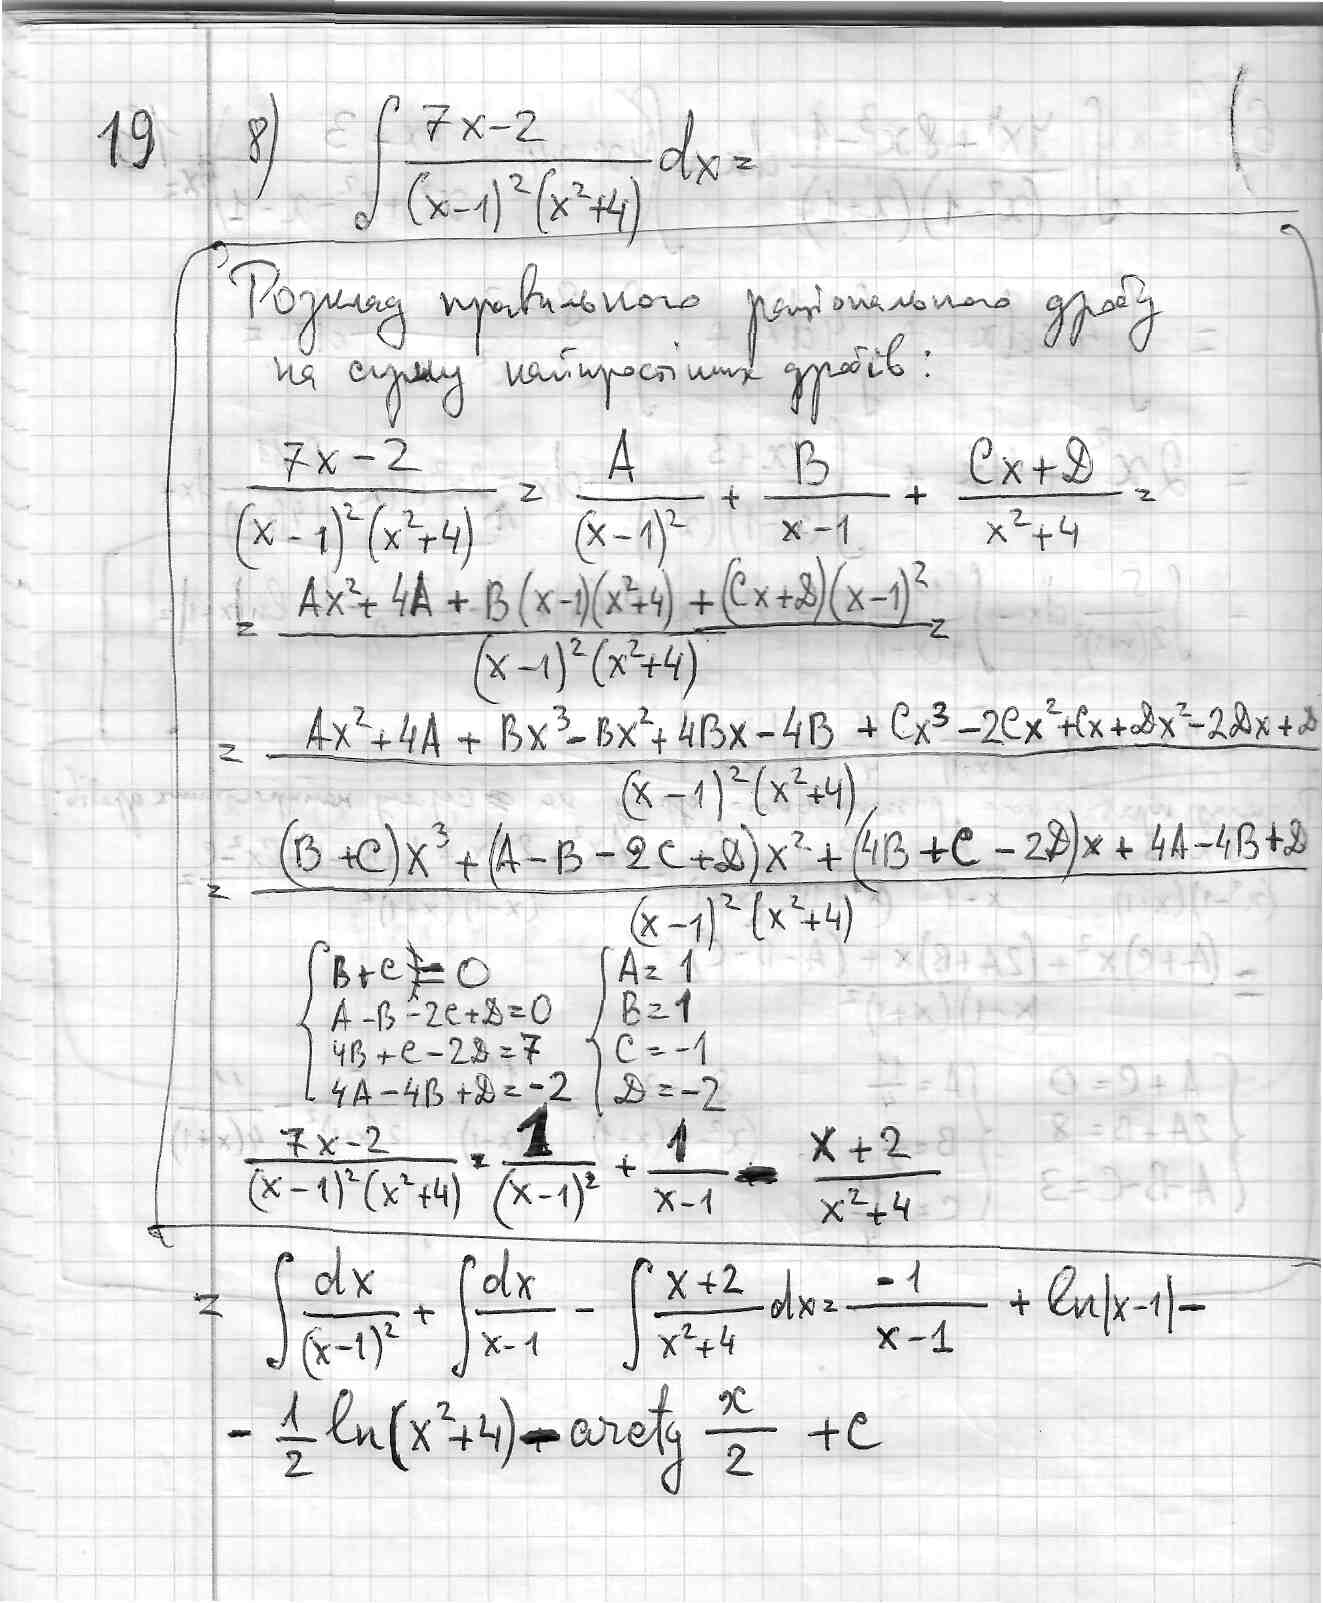 19 8) ∫ (7x-2)/((x-1)²(x²+4)) dx =
Розклад правильного раціонального дробу
на суму найпростіших дробів:
(7x-2)/((x-1)²(x²+4)) = A/(x-1)² + B/(x-1) + (Cx+D)/(x²+4) =
= (Ax²+4A+B(x-1)(x²+4)+(Cx+D)(x-1)²)/((x-1)²(x²+4)) =
= (Ax²+4A+Bx³-Bx²+4Bx-4B+Cx³-2Cx²+Cx+Dx²-2Dx+D)/((x-1)²(x²+4))
= ((B+C)x³+(A-B-2C+D)x²+(4B+C-2D)x+4A-4B+D)/((x-1)²(x²+4))
{ B+C=0 { A=1
A-B-2C+D=0 B=1
4B+C-2D=7 C=-1
4A-4B+D=-2 D=-2
(7x-2)/((x-1)²(x²+4)) = 1/(x-1)² + 1/(x-1) - (x+2)/(x²+4)
= ∫ dx/(x-1)² + ∫ dx/(x-1) - ∫ (x+2)/(x²+4) dx = -1/(x-1) + ln|x-1| -
- 1/2 ln(x²+4) - arctg x/2 + C